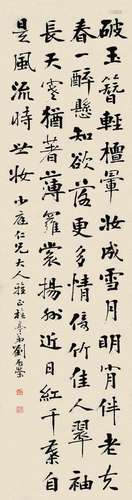 破玉簪輕檀暈妝成雪月明肯伴老夫
春一醉懸知欲落更多情倚竹佳人翠袖
長天寒猶著薄羅裳揚州近日紅千葉自
是風流時世妝 小庭仁兄大人雅正 弟劉